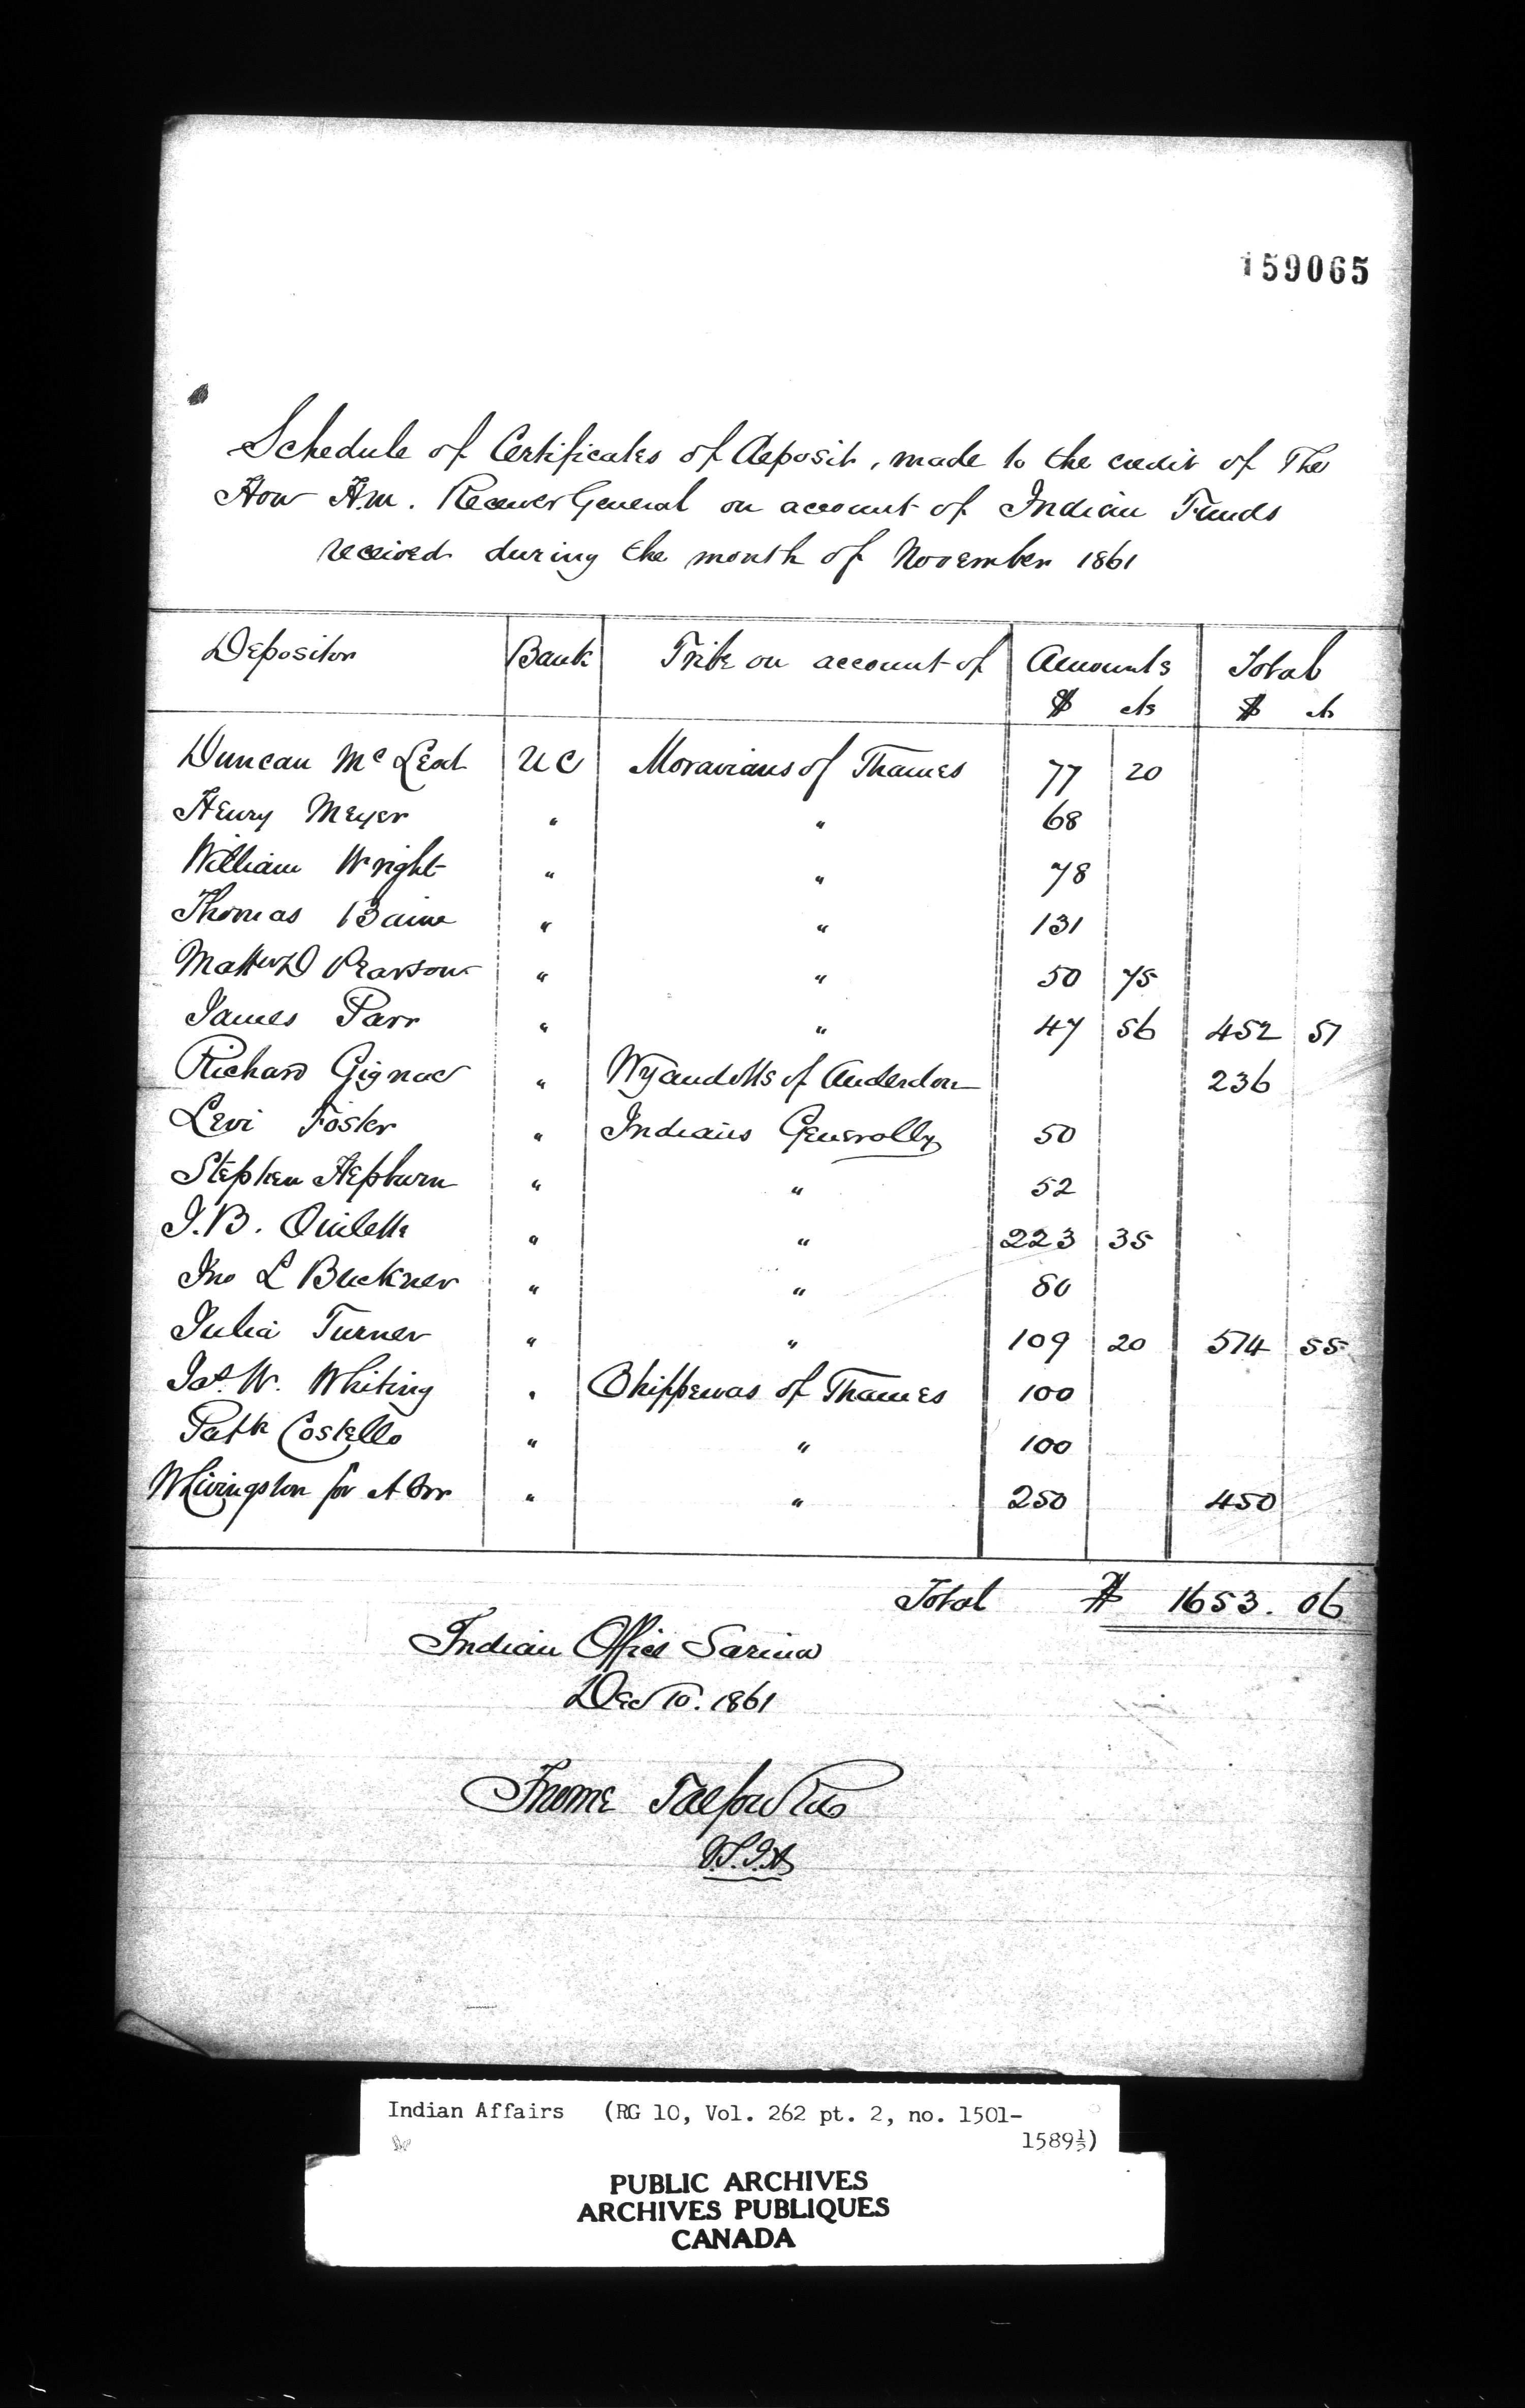 159065
Schedule of Certificates of Deposit, made to the credit of The
Hon H.M. Receiver General on account of Indian Funds
received during the month of November 1861
Depositor Bank Tribe on account of Amounts Total
$ cts $ cts
Duncan McLeod UC Moravians of Thames 77 20
Henry Meyer " " 68
William Wright " " 78
Thomas Baine " " 131
Matthew D Pearson " " 50 75
James Parr " " 47 56 452 51
Richard Gignac " Wyandotts of Anderdon 236
Levi Foster " Indians Generally 50
Stephen Hepburn " " 52
J.B. Ouilette " " 223 35
Jno L Buckner " " 80
Julia Turner " " 109 20 514 55
Jas. W. Whiting " Chippewas of Thames 100
Patk Costello " " 100
W Livingston for A Orr " " 250 450
Total $ 1653.06
Indian Office Sarnia
Dec 10. 1861
Froome Talfourd
V.S.I.A
Indian Affairs (RG 10, Vol. 262 pt. 2, no. 1501-
1589½)
PUBLIC ARCHIVES
ARCHIVES PUBLIQUES
CANADA